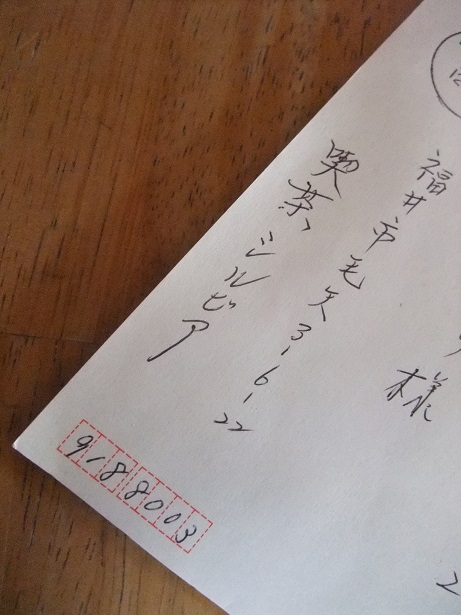 様
福井市毛矢3-6-22
喫茶、シルビア
9188003